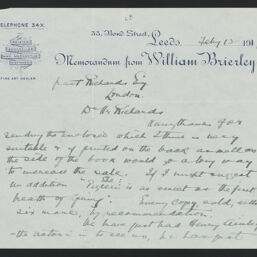 TELEPHONE 34X.
23
33, Bond Street, Leeds, Feby 12 191
FINE ART DEALER.
Memorandum from William Brierley
Grant Richards Esq
London.
Dr Mr Richards
Many thanks for
sending the enclosed which I think is very
suitable & if printed on the back as well as
the side of the book would be a big way
to increase the sale. If I might suggest
an addition "The Pigeon" is as sweet as the first
breath of Spring. Every copy sold, sells
six more, by recommendation.
We have just had Henry Ainley
the actor in to see us, he has just